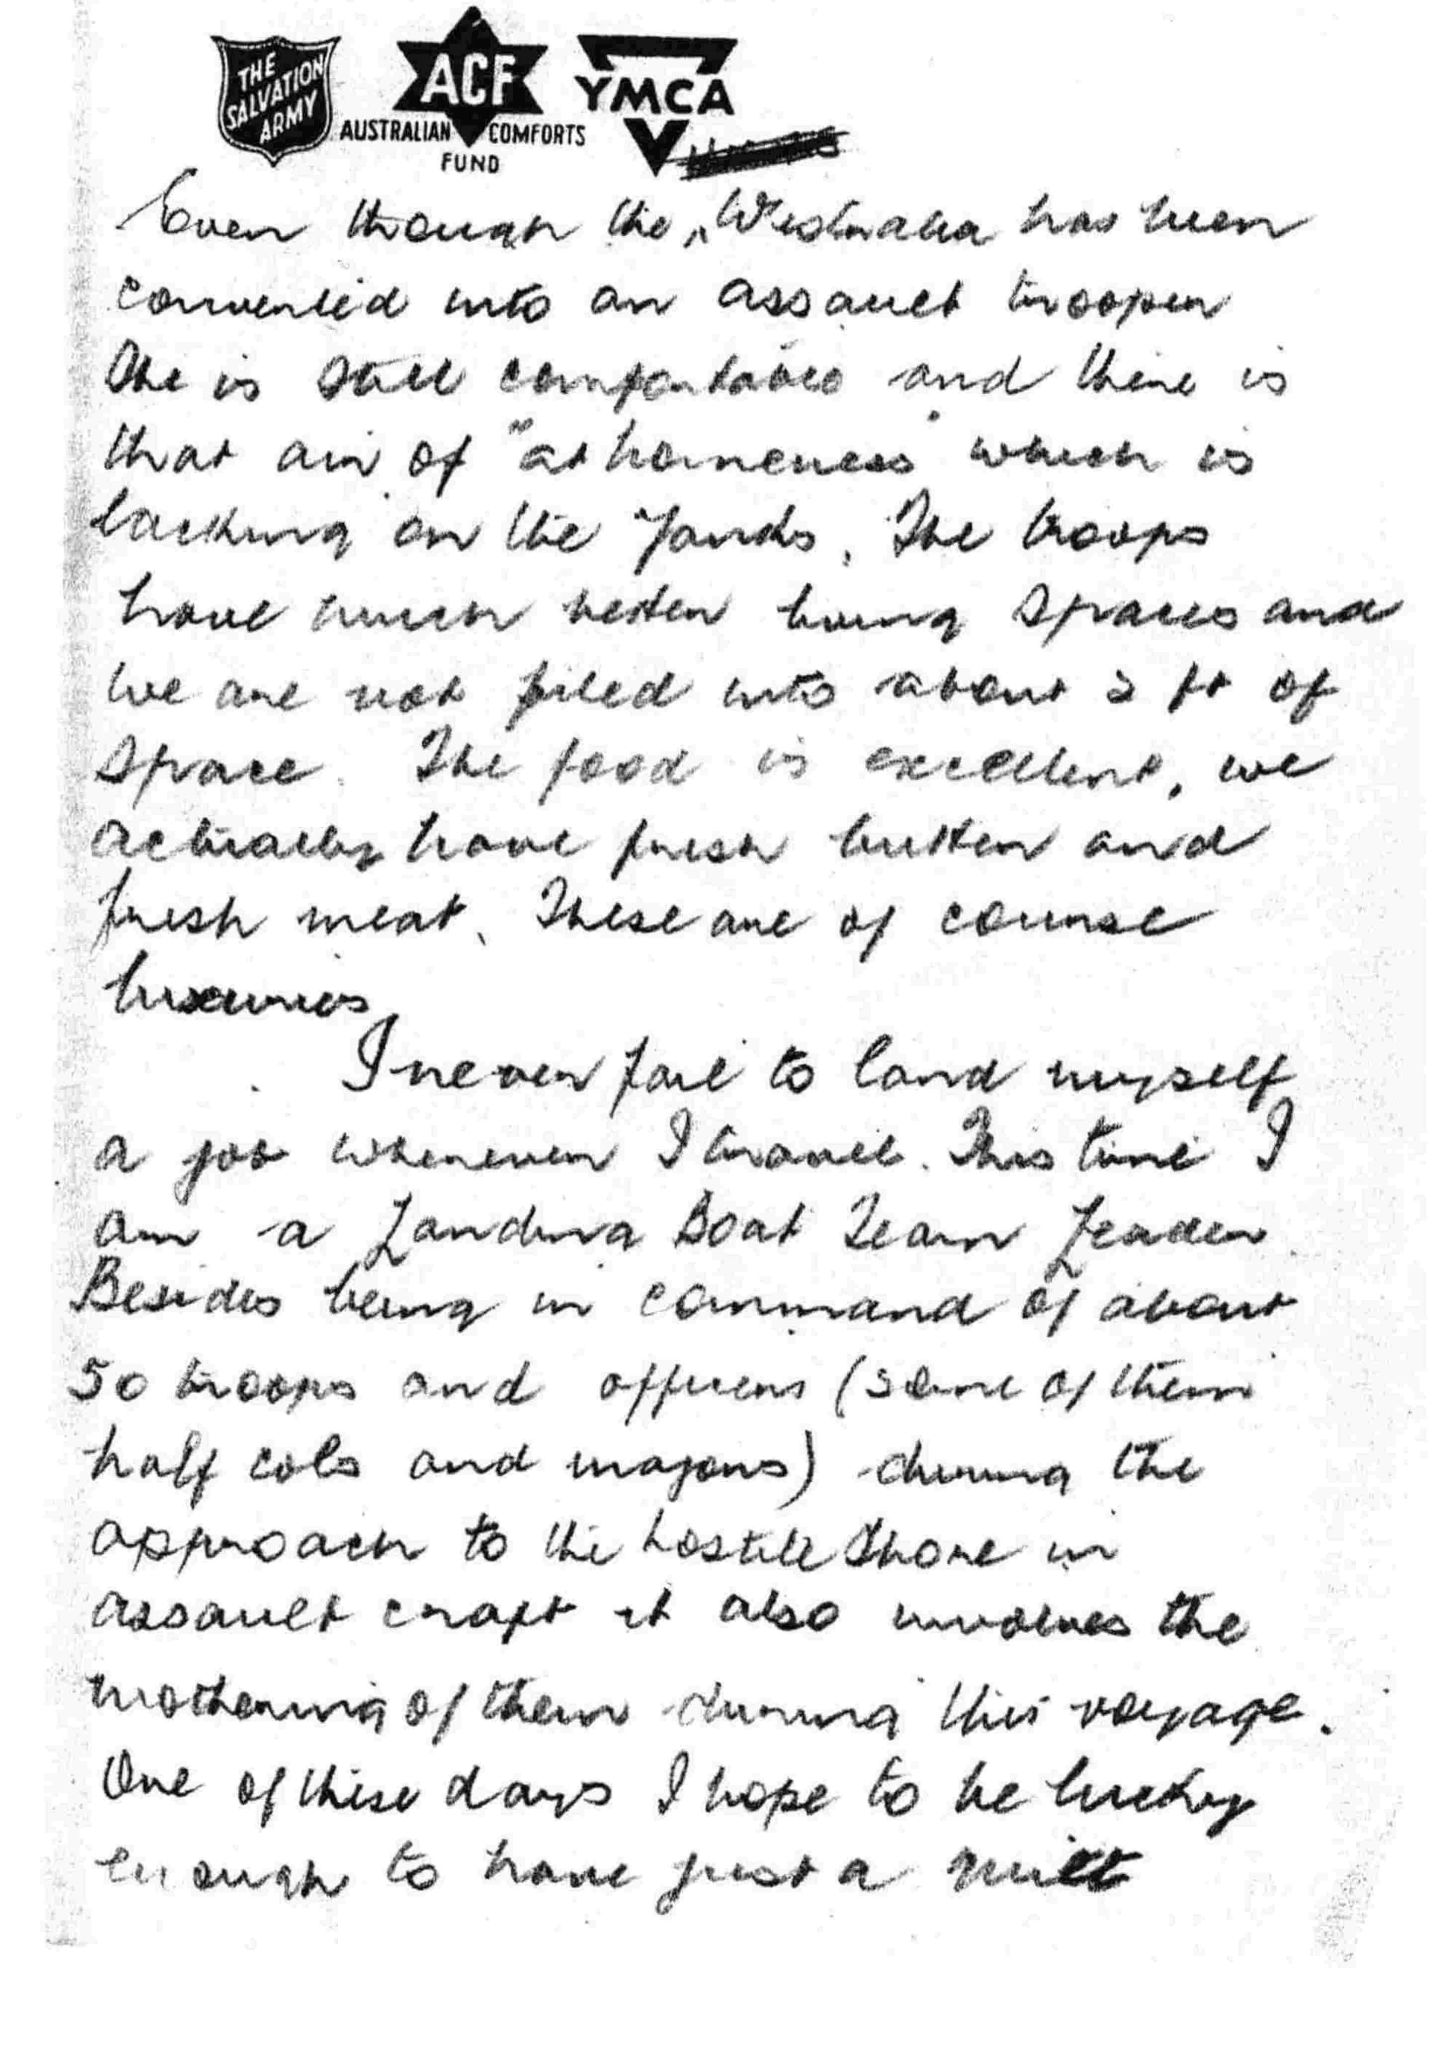 THE SALVATION ARMY
ACF
AUSTRALIAN COMFORTS FUND
YMCA
Even though the "Westralia has been
converted into an assault trooper
she is still comfortable and there is
that air of "at homeness" which is
lacking on the Yanks. The troops
have much better living spaces and
we are not piled into about 2 ft of
space. The food is excellent, we
actually have fresh butter and
fresh meat. These are of course
luxuries
I never fail to land myself
a job whenever I travel. This time I
am a Landing Boat Team Leader.
Besides being in command of about
50 troops and officers (some of them
half cols and majors) during the
approach to the hostile shore in
assault craft it also involves the
mothering of them during this voyage.
One of these days I hope to be lucky
enough to have just a